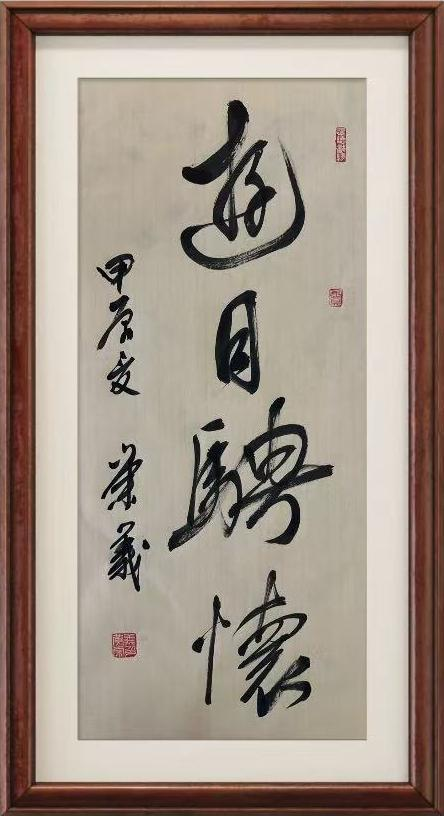 遊目騁懷
甲辰夏 榮義